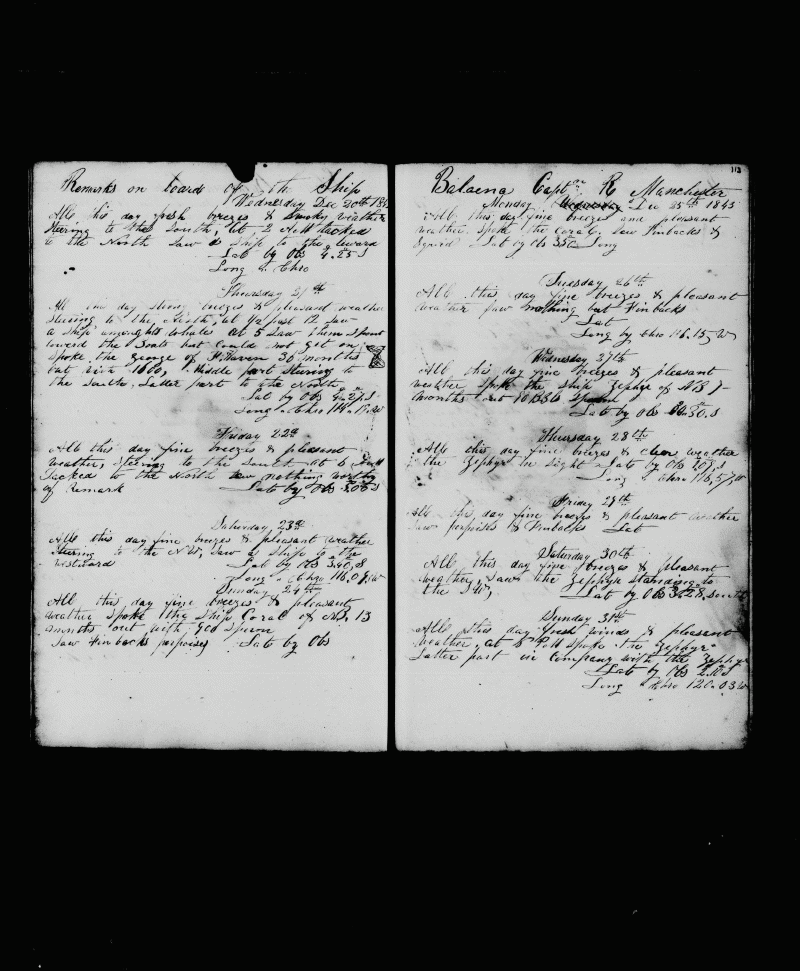 Remarks on board of the Ship
Wednesday Dec 20th 184
All this day fresh breezes & smoky weather
Stering to the South, at 2 AM tacked
to the North Saw a Ship to the leward
Lat by Obs 4.25 S
Long " Chro
Thursday 21st
All this day strong breezes & pleasant weather
stering to the North, at 1/2 past 12 saw
a ship amongst whales at 5 Saw them spout
toward the Boats but could not get on
spoke the George of F.Haven 30 months
out with 1600, Middle part Stering to
the South, Latter part to the North
Lat by Obs 4.27 S
Long " Chro 114.
Friday 22d
All this day fine breezes & pleasant
weather, Stering to the South at 6
Tacked to the North saw nothing worthy
of Remark Lat by Obs 3.06 S
Saturday 23d
All this day fine breezes & pleasant weather
Stering to the NW, Saw a Ship to the
westward Lat by Obs 3.40, S
Long " Chro 116.07, W
Sunday 24th
All this day fine breezes & pleasant
weather Spoke the Ship Coral of NB 13
months out with 900 sperm
Saw Finbacks porpoises Lat by Obs
113
Balaena Captn R Manchester
Monday Dec 25th 1843
All this day fine breezes and pleasant
weather Spoke the Coral, Saw Finbacks &
Squid Lat by Obs Long
Tuesday 26th
All this day fine breezes & pleasant
weather Saw nothing but Finbacks
Lat
Long by Chro 116.15, W
Wednesday 27th
All this day fine breezes & pleasant
weather Spoke the Ship Zephyr of NB 7
months out Sperm
Lat by Obs 30. S
Thursday 28th
All this day fine breezes & clear weather
the Zephyr in Sight Lat by Obs S
Long " Chro 116,57 W
Friday 29th
All this day fine breezes & pleasant weather
Saw porpoises & Finbacks Lat
Saturday 30th
All this day fine breezes & pleasant
weather, Saw the Zephyr standing to
the SW, Lat by Obs 3.28, South
Sunday 31st
All this day fresh winds & pleasant
weather, at 6 PM Spoke the Zephyr
Latter part in Company with the Zephyr
Lat by Obs 2. S
Long " Chro 120.03 W